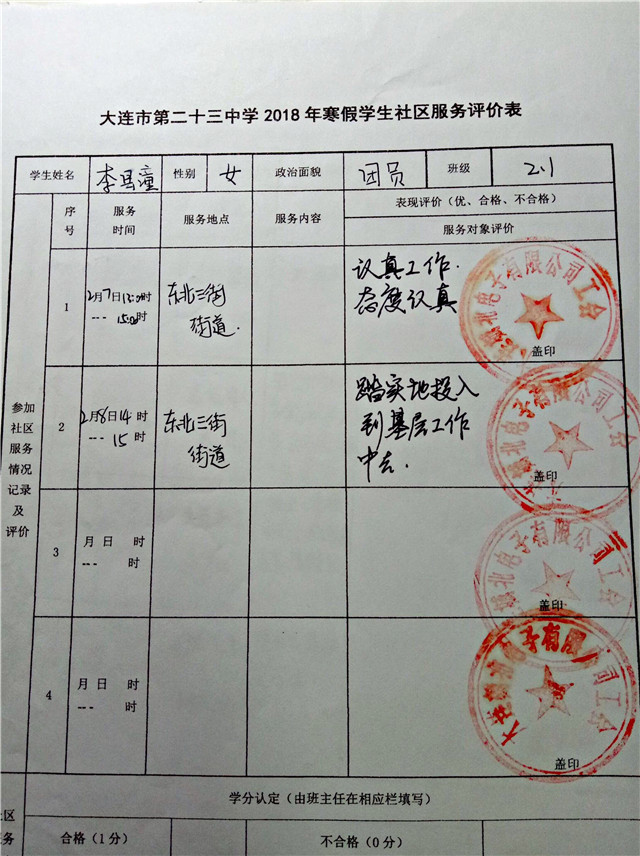 大连市第二十三中学2018年寒假学生社区服务评价表
学生姓名 李昱潼 性别 女 政治面貌 团员 班级 2.1
序号 服务时间 服务地点 服务内容 表现评价（优、合格、不合格）
服务对象评价
参加社区服务情况记录及评价
1 2月7日13:00时
--- 15:00时
东北三街
街道.
认真工作.
态度认真
盖印
2 2月8日14时
--- 15时
东北三街
街道
踏实地投入
到基层工作
中去.
盖印
3 月 日 时
--- 时
盖印
4 月 日 时
--- 时
盖印
学分认定（由班主任在相应栏填写）
社区
服务
合格（1分） 不合格（0分）